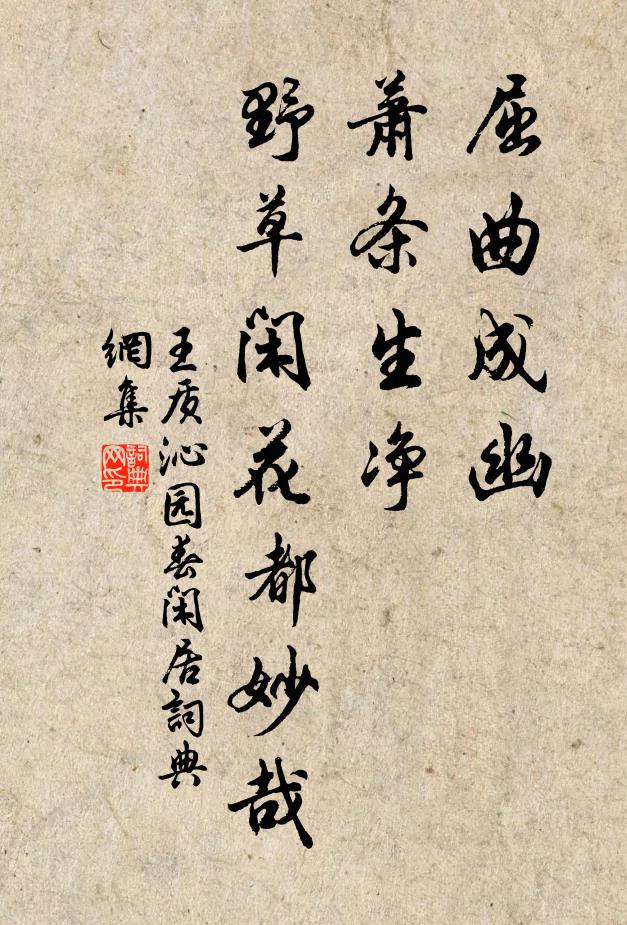 屈曲成幽
萧条生净
野草闲花都妙哉
王质沁园春闲居詞典
網集
詞典网印